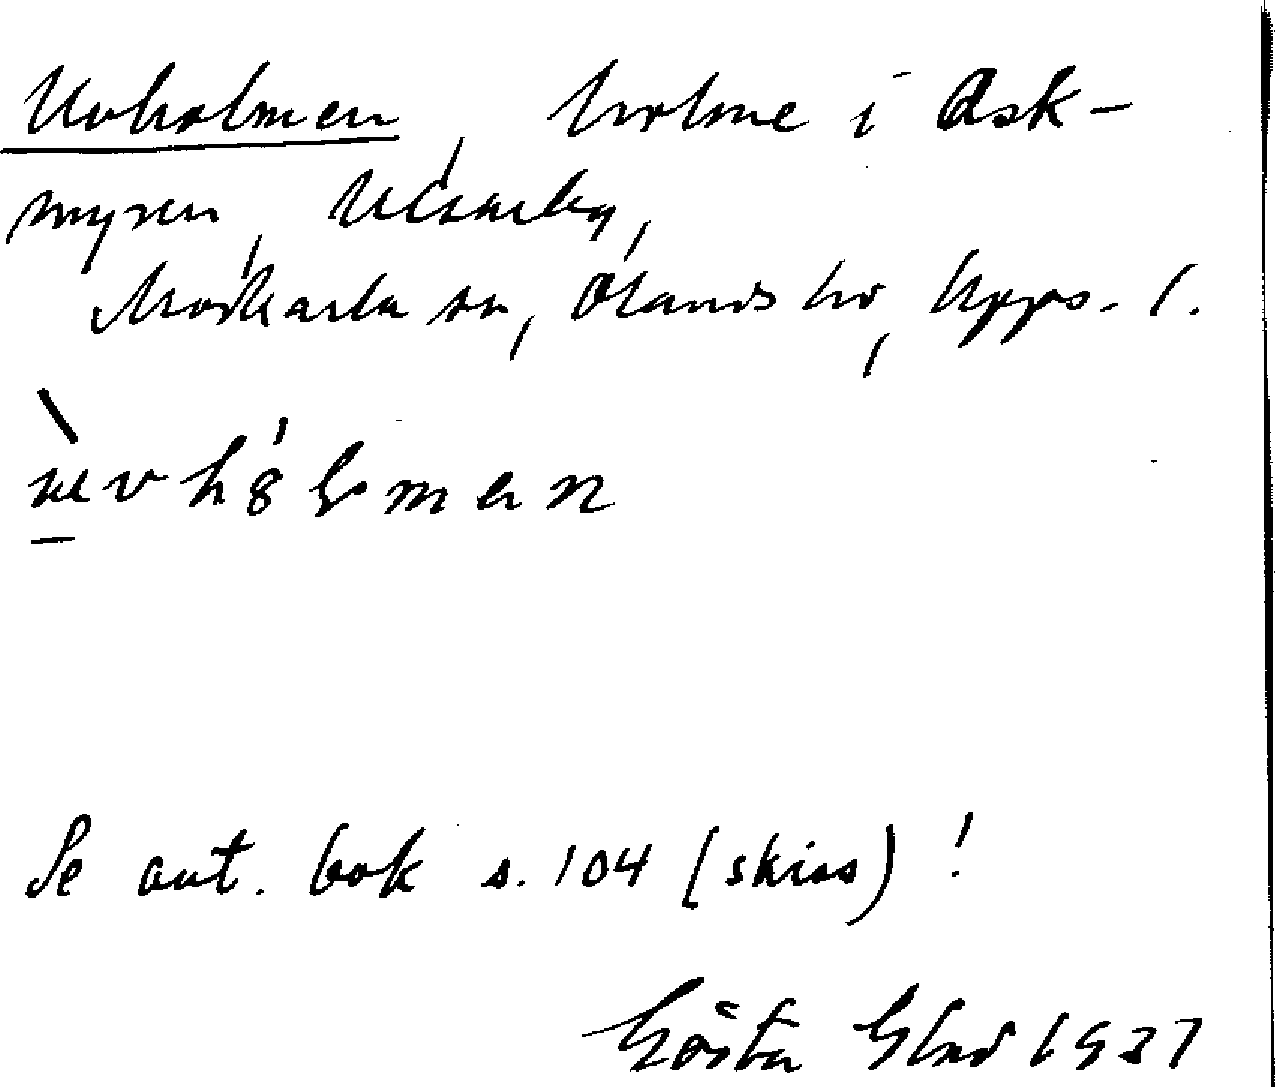 Uvholmen, holme i Ask-
myren, Ulsarby,
Morkarla sn, Olands hd, Upps. l.
Se ant. bok s. 104 (skiss)!
Gösta Glad 1937